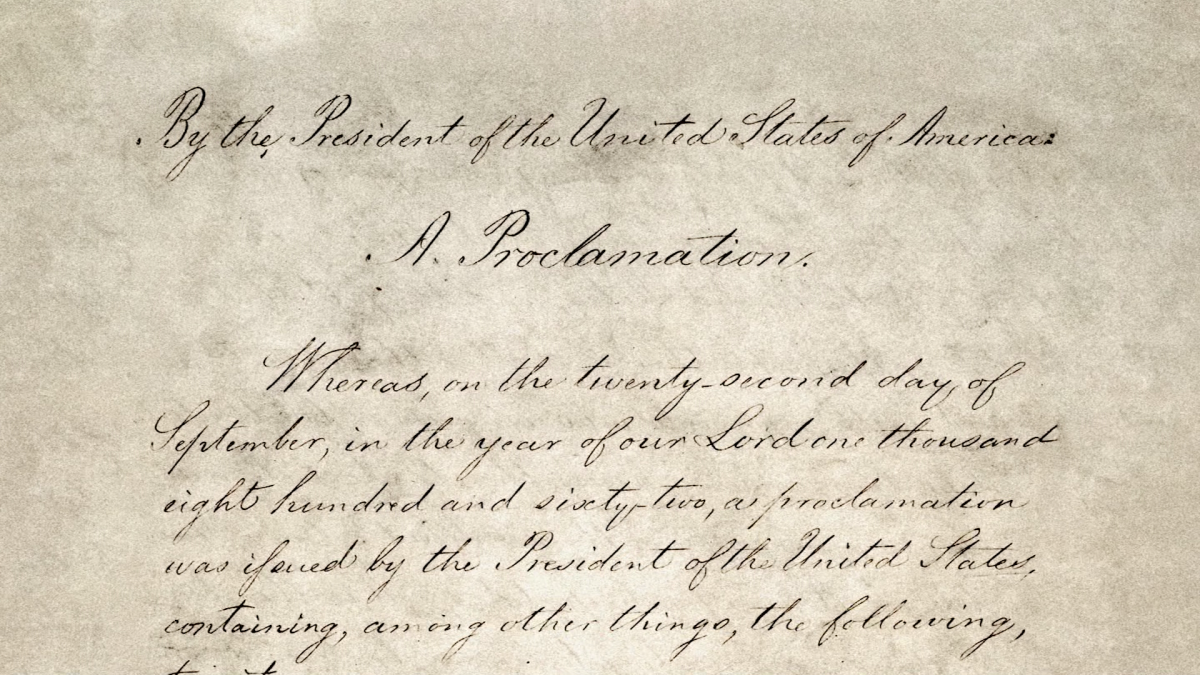 By the President of the United States of America:
A Proclamation.
Whereas, on the twenty-second day of
September, in the year of our Lord one thousand
eight hundred and sixty-two, a proclamation
was issued by the President of the United States,
containing, among other things, the following,
to wit